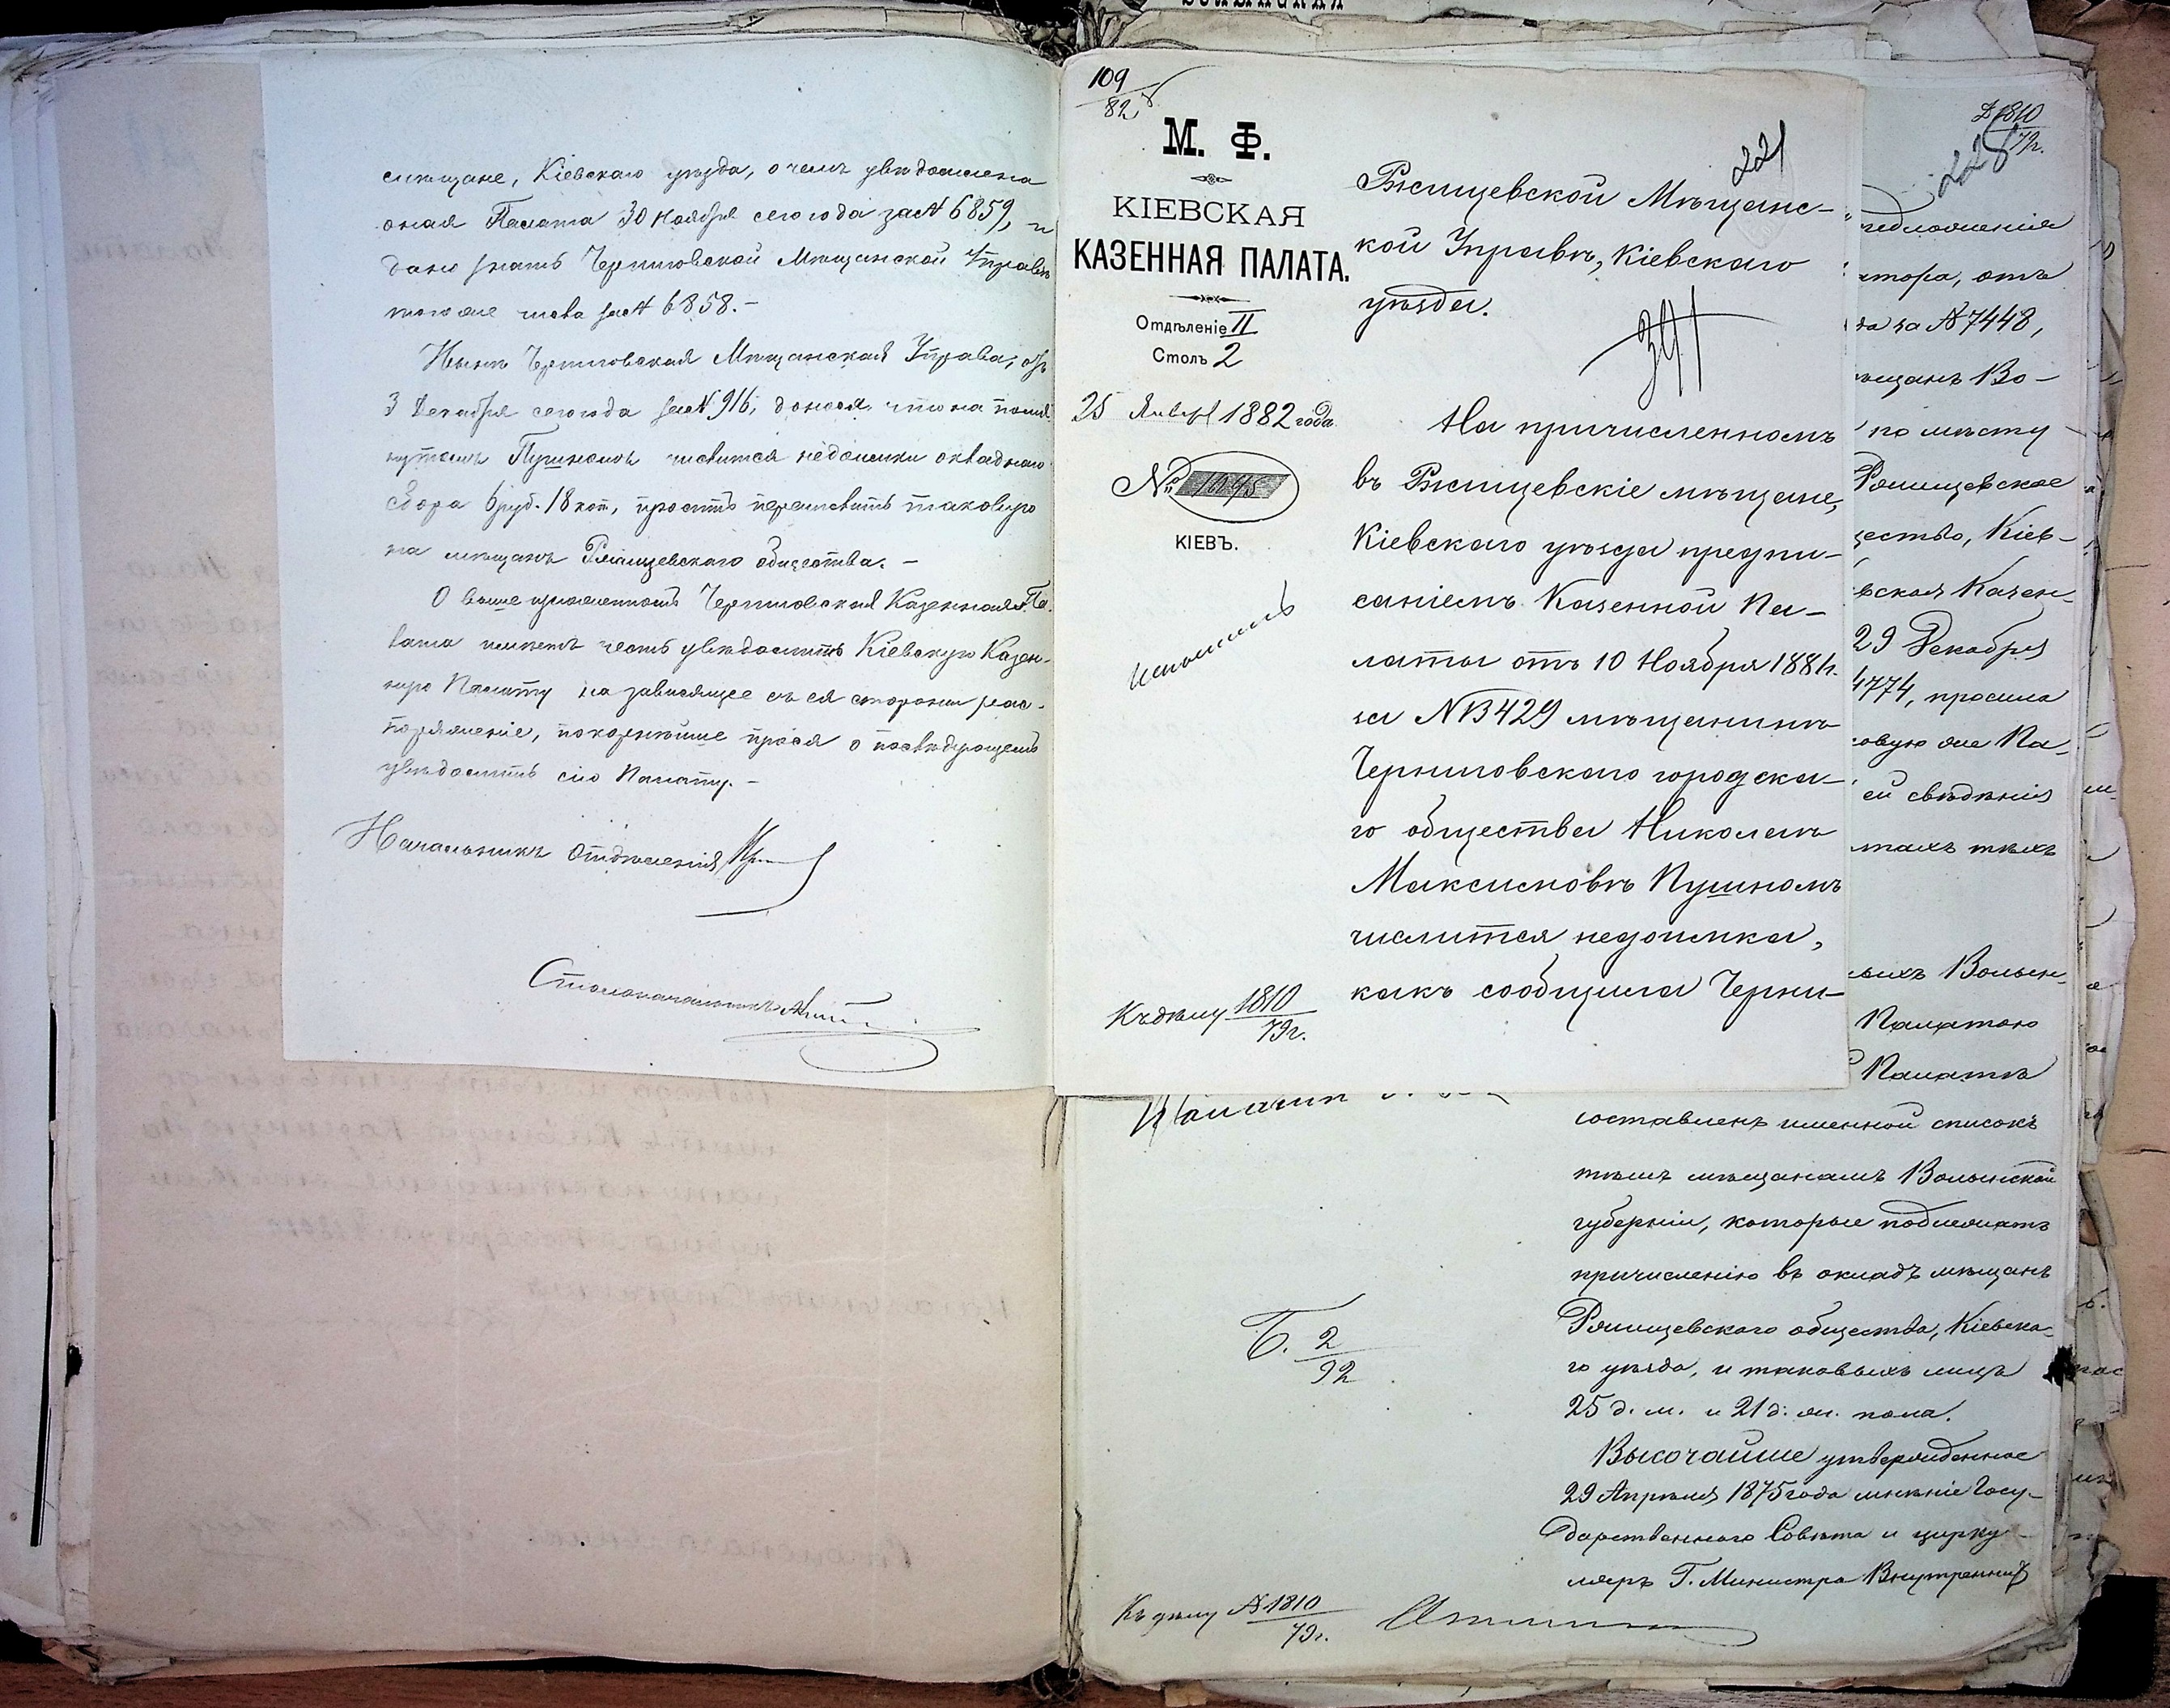 мѣщане, Кіевскаго уѣзда, о чемъ увѣдомлена
оная Палата 30 Ноября сего года за № 6859, и
дано знать Черниговской Мѣщанской Управѣ
того же числа за № 6858.-
Нынѣ Черниговская Мѣщанская Управа, отъ
3 Декабря сего года за № 916, донося, что на помя-
нутомъ Пушномъ числится недоимки окладнаго
сбора 6 руб. 18 коп., проситъ перечислить таковую
на мѣщанъ Ржищевскаго общества. -
О вышеизложенномъ Черниговская Казенная Па-
лата имѣетъ честь увѣдомить Кіевскую Казен-
ную Палату на зависящее съ ея стороны рас-
поряженіе, покорнѣйше прося о послѣдующемъ
увѣдомить сію Палату. -
Начальникъ Отдѣленія
Столоначальникъ
109
82
М. Ф.
КІЕВСКАЯ
КАЗЕННАЯ ПАЛАТА.
Отдѣленіе II
Столъ 2
25 Января 1882 года
№ 1095
КІЕВЪ.
Къ дѣлу 1810
79 г.
221
Ржищевской Мѣщанс-
кой Управѣ, Кіевскаго
уѣзда.
На причисленномъ
въ Ржищевскіе мѣщане,
Кіевскаго уѣзда предпи-
саніемъ Казенной Па-
латы отъ 10 Ноября 1881 г.
за № 13429 мѣщанинѣ
Черниговскаго городска-
го общества Николаѣ
Максимовѣ Пушномъ
числится недоимка,
какъ сообщила Черни-
Д 1810
79 г.
228
атора, отъ
за № 7448,
мѣщанъ Во-
по мѣсту
Ржищевское
щество, Кіев-
вская Казен-
29 Декабря
4774, просила
ковую же Па-
ей свѣдѣнія
Волын-
Палатою
Палатѣ
составленъ именной списокъ
тѣмъ мѣщанамъ Волынской
губерніи, которые подлежатъ
причисленію въ окладъ мѣщанъ
Ржищевскаго общества, Кіевска-
го уѣзда, и таковыхъ лицъ
25 д. м. и 21 д. ж. пола.
Высочайше утвержденное
29 Апрѣля 1875 года мнѣніе Госу-
дарственнаго Совѣта и цирку-
ляръ Г. Министра Внутреннихъ
Б. 2
92
Къ дѣлу № 1810
79 г.